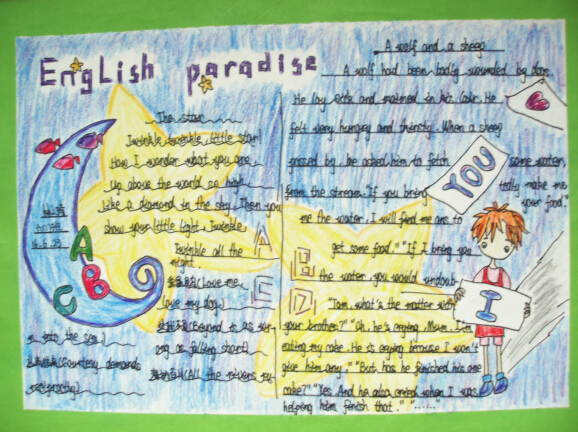 English paradise
The star
Twinkle twinkle, little star
How I wonder what you are
Up above the world so high
Like a diamond in the sky. Then you
show your little light, Twinkle
Twinkle all the
night.
(Love me,
love my dog)
(Beyond is as wr-
ong as falling short)
(All the rivers ru-
n into the sea)
(Courtesy demands
reciprocity)
A
B
C
A
B
C
D
A wolf and a sheep
A wolf had been badly wounded by dogs.
He lay sick and maimed in his lair. He
felt very hungry and thirsty. When a sheep
passed by, he asked him to fetch some water
from the stream. "If you bring
me the water, I will find me ans to
get some food." "If I bring you
the water, you would undoub-
tedly make me
your food."
"Tom, what's the matter with
your brother?" "Oh, he's crying, Mum. I'm
eating my cake. He is crying because I won't
give him any." "But has he finished his one
cake?" "Yes. And he also cried when I was
helping him finish that." "......"
YOU
I